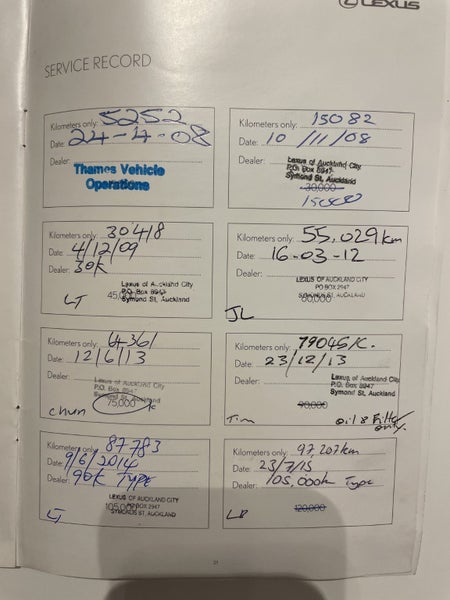 LEXUS
SERVICE RECORD
Kilometers only: 5252
Date: 24-4-08
Dealer:
Thames Vehicle
Operations
Kilometers only: 15082
Date: 10/11/08
Dealer:
Lexus of Auckland City
P.O. Box 8947
Symond St, Auckland
30,000
15000
Kilometers only: 30418
Date: 4/12/09
Dealer: 30K
Lexus of Auckland City
P.O. Box 8947
Symond St, Auckland
LT
Kilometers only: 55,029km
Date: 16-03-12
Dealer:
LEXUS OF AUCKLAND CITY
PO BOX 2947
SYMONDS ST, AUCKLAND
JL
Kilometers only: 64361
Date: 12/6/13
Dealer:
Lexus of Auckland City
P.O. Box 8947
Symond St, Auckland
75,000 K
chun
Kilometers only: 79045K.
Date: 23/12/13
Dealer:
Lexus of Auckland City
P.O. Box 8947
Symond St, Auckland
90,000
Tim oil & Filter
only.
Kilometers only: 87783
Date: 9/6/2014
Dealer: 90K TYPE
LEXUS OF AUCKLAND CITY
PO BOX 2947
SYMONDS ST, AUCKLAND
LT
Kilometers only: 97,207km
Date: 23/7/15
Dealer: 105,000k Type
120,000
21